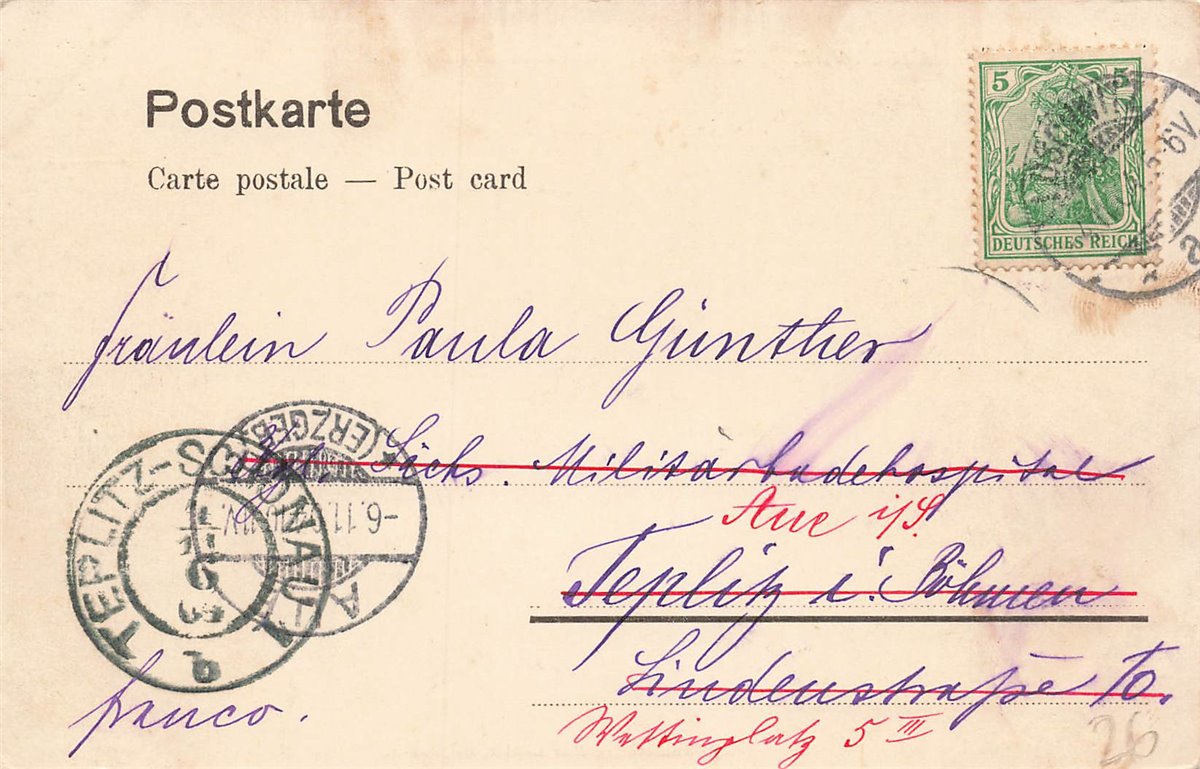 Postkarte
Carte postale — Post card
5 5
DEUTSCHES REICH
6V
2
Fräulein Paula Günther
Kgl. Sächs. Militärbadehospital
Aue i/S.
Teplitz i. Böhmen
Lindenstraße
Wettinplatz 5 III
franco.
TEPLITZ-SCHÖNAU 1
(ERZGEB)
-6.11.
26